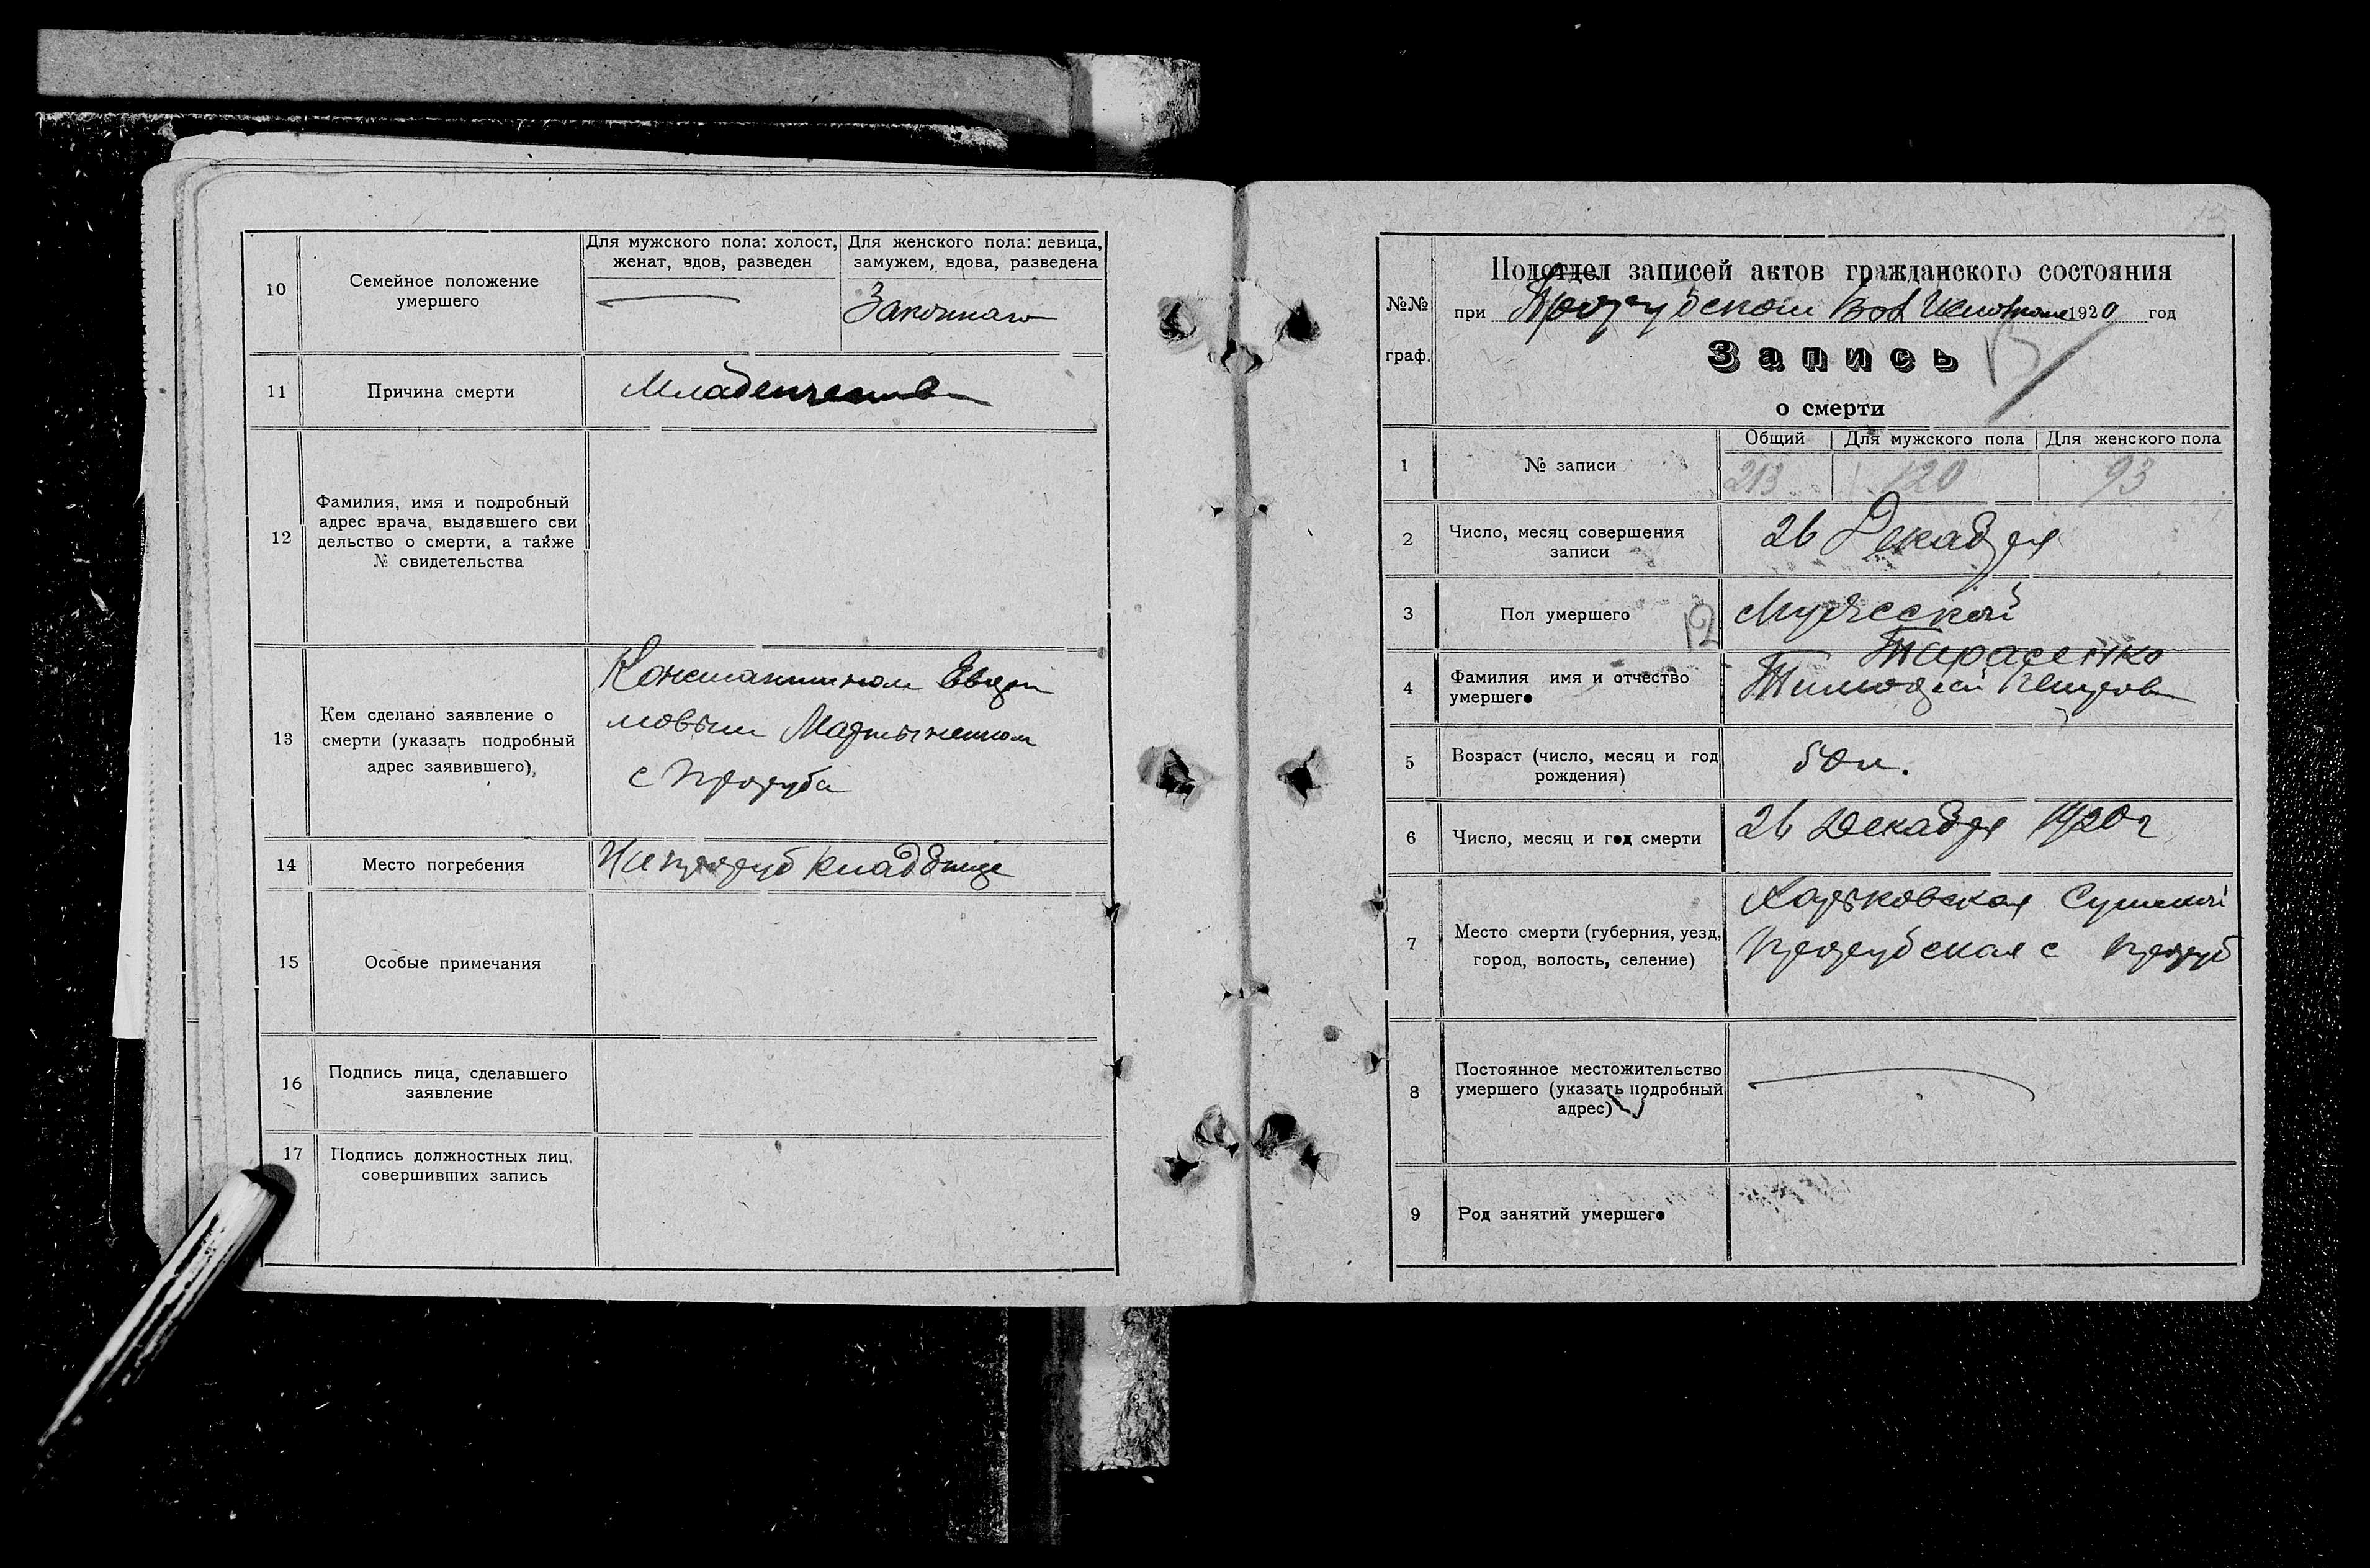 10
Семейное положение
умершего
Для мужского пола: холост,
женат, вдов, разведен
Для женского пола: девица,
замужем, вдова, разведена
Законнаго
11
Причина смерти
Младенческая
12
Фамилия, имя и подробный
адрес врача, выдавшего сви
дельство о смерти, а также
№ свидетельства
13
Кем сделано заявление о
смерти (указать подробный
адрес заявившего),
Константином Евдри
мовым Мартыненком
с Проруба
14
Место погребения
На проруб кладбище
15
Особые примечания
16
Подпись лица, сделавшего
заявление
17
Подпись должностных лиц,
совершивших запись
№№
граф.
Подотдел записей актов гражданского состояния
при Прорубском Вол Исполкоме 1920 год
Запись
о смерти
1
№ записи
Общий
Для мужского пола
Для женского пола
213
120
93
2
Число, месяц совершения
записи
26 Декабря
3
Пол умершего
12
Мужской
4
Фамилия имя и отчество
умершего
Тарасенко
Тимофей
5
Возраст (число, месяц и год
рождения)
50 л.
6
Число, месяц и год смерти
26 Декабря 1920 г
7
Место смерти (губерния, уезд,
город, волость, селение)
Харьковская Сумской
Прорубская с Проруб
8
Постоянное местожительство
умершего (указать подробный
адрес)
9
Род занятий умершего